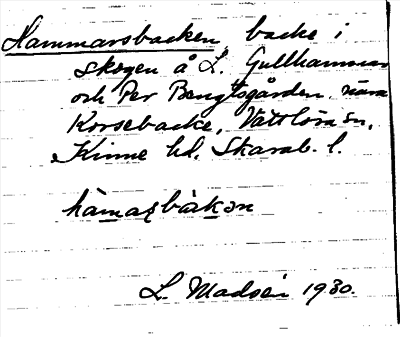 Hammarsbacken backe i
skogen å L. Gullhammar
och Per Bengtsgården nära
Korsebacke, Vättlösa sn,
Kinne hd. Skarab. l.
hàmaʂbàkən
L. Madsén 1930.